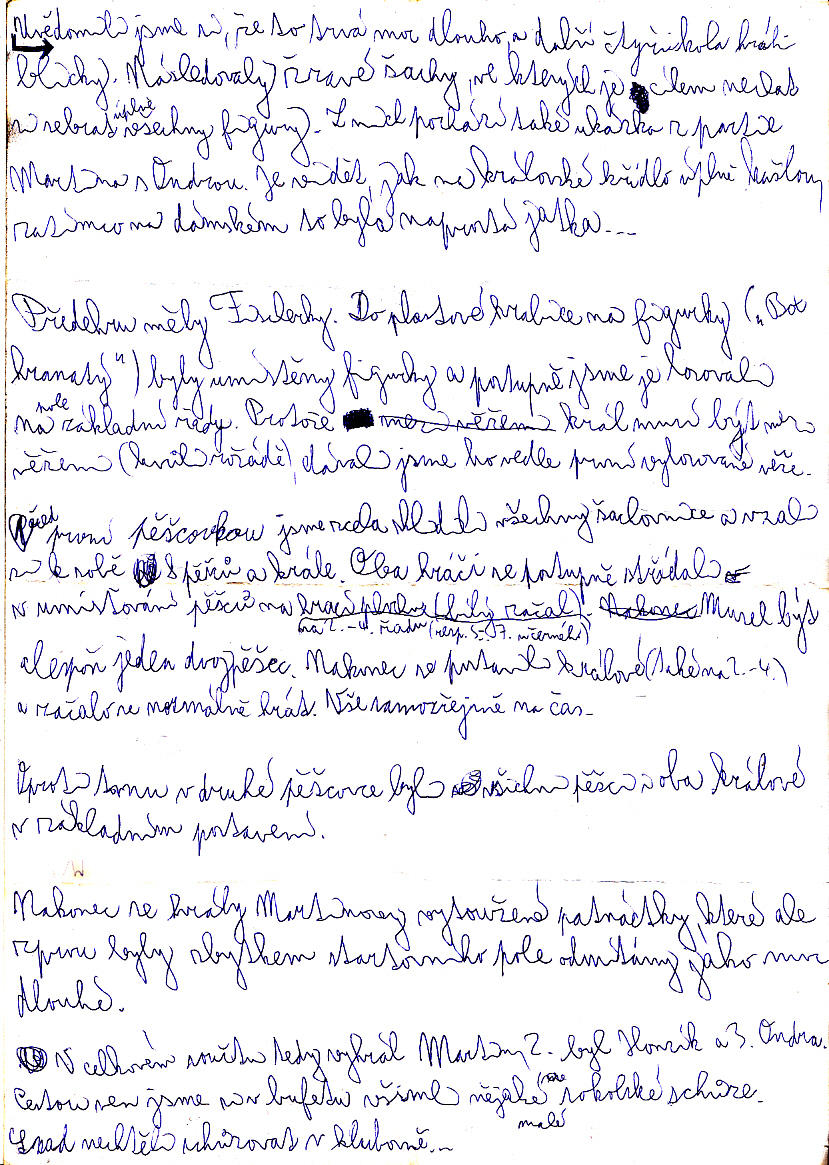 Uvědomili jsme si, že to trvá moc dlouho, a další čtyřikola hráli
blicky). Následovaly žravé šachy, ve kterých je cílem nedat
si sebrat úplně všechny figury). Z nich pochází také ukázka z partie
Martina s Ondrou. Je vidět, jak na královské křídlo úplně kašlou,
zatímco na dámském to byla naprostá jatka...
Předehru měly Fischerky. Do plastové krabice na figurky („Box
hranatý“) byly umístěny figurky a postupně jsme je losovali
na pole základní řady. Protože mezi věžemi král musí být mezi
věžemi (kvůli rošádě), dávali jsme ho vedle první vylosované věže.
Před první pěšcovkou jsme zcela sklidili všechny šachovnice a vzali
si k sobě 8 pěšců a krále. Oba hráči se postupně střídali
v umisťování pěšců na hrací plochu (bílý začal). Nakonec Musel být
na 2.-4. řadu (resp. 5.-7. u černého)
alespoň jeden dvojpěšec. Nakonec se postavili králové (také na 2.-4.)
a začalo se normálně hrát. Vše samozřejmě na čas.
Oproti tomu v druhé pěšcovce byli všichni pěšci i oba králové
v základním postavení.
Nakonec se hrály Martinovy vytoužené patnáctky, které ale
zprvu byly zbytkem startovního pole odmítány jako moc
dlouhé.
V celkovém součtu tedy vyhrál Martin, 2. byl Honzík a 3. Ondra.
Cestou ven jsme si v bufetu všimli nějaké sokolské schůze.
malé
Snad nechtěli schůzovat v klubovně...